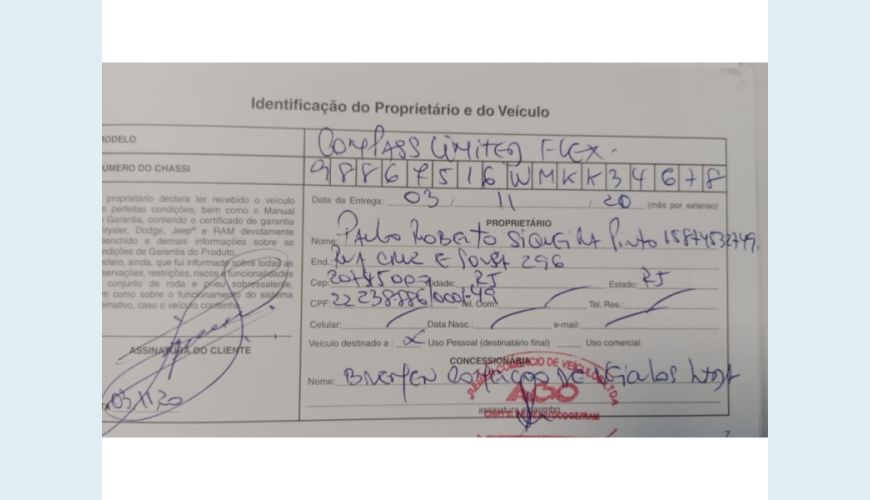 Identificação do Proprietário e do Veículo
MODELO COMPASS LIMITED FLEX.
NÚMERO DO CHASSI 98867516WMKK34678
Data da Entrega: 03 / 11 / 20 (mês por extenso)
proprietário declara ter recebido o veículo
perfeitas condições, bem como o Manual
Garantia, contendo o certificado de garantia
rysler, Dodge, Jeep® e RAM devidamente
enchido e demais informações sobre as
ndições de Garantia do Produto.
claro, ainda, que fui informado sobre todas as
servações, restrições, riscos e funcionalidades
conjunto de roda e pneu sobressalente,
m como sobre o funcionamento do sistema
ernativo, caso o veículo contenha.
ASSINATURA DO CLIENTE
03/11/20
PROPRIETÁRIO
Nome: PAULO ROBERTO SIQUEIRA PINTO 15874532749.
End.: RUA CRUZ E SOUSA 296
Cep: 20745007 Cidade: RJ Estado: RJ
CPF: 22238886/0001-49 Tel. Com.: Tel. Res.:
Celular: Data Nasc.: e-mail:
Veículo destinado a : X Uso Pessoal (destinatário final) Uso comercial
CONCESSIONÁRIA
Nome: COMERCIO DE VEICULOS LTDA
AGO
assinatura e carimbo
7